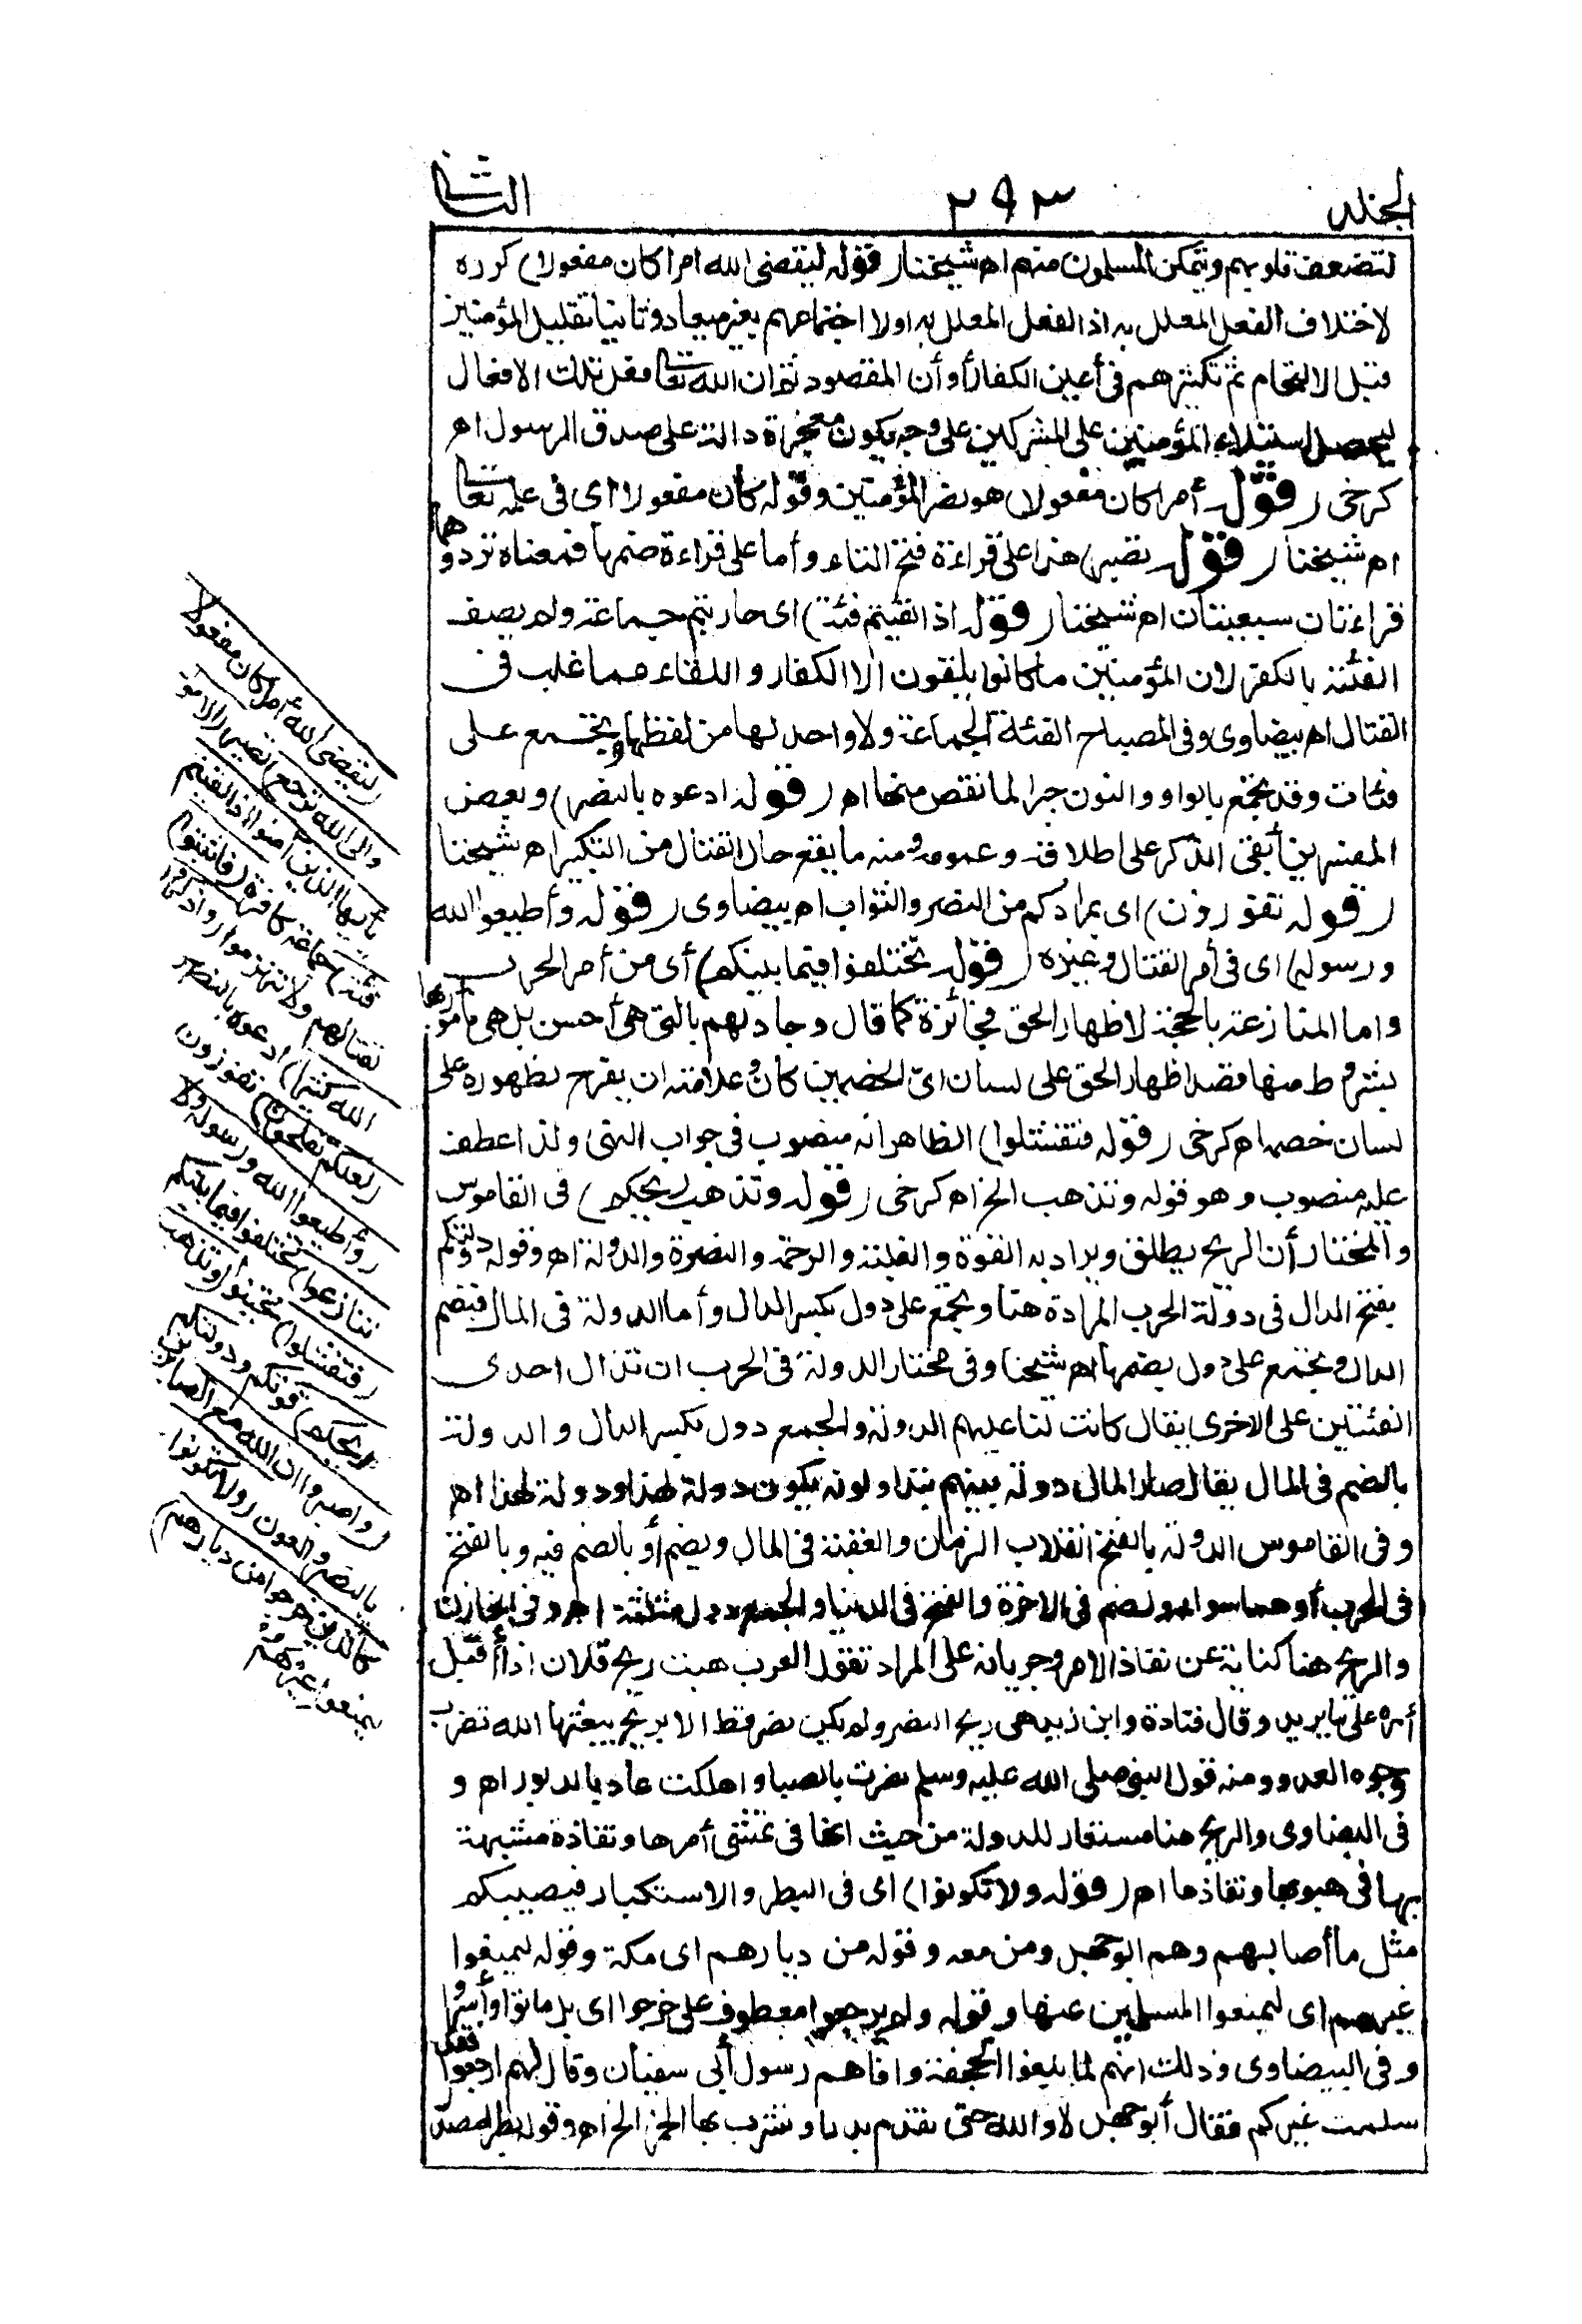 الجلد ٢٩٣ الثانى
لتضعف قلوبهم ويتمكن المسلمون منهم اه شيخنا (قوله ليقضى الله امرا كان مفعولا) كرره
لاختلاف الفعل المعلل به اذ الفعل المعلل به اولا اجتماعهم بغير ميعاد وثانيا تقليل المؤمنين
قبل الالتحام ثم تكثيرهم فى أعين الكفار أو أن المقصود ثم ان الله تعالى فعل تلك الافعال
ليحصل استيلاء المؤمنين على المشركين على وجه يكون معجزة دالة على صدق الرسول اه
كرخى (قوله أمرا كان مفعولا) هو نصر المؤمنين وقوله كان مفعولا اى فى علمه تعالى
اه شيخنا (قوله تصير) هذا على قراءة فتح التاء وأما على قراءة ضمها فمعناه ترد وهما
قراءتان سبعيتان اه شيخنا (قوله اذا لقيتم فئة) اى حاربتم جماعة ولم يصف
الفئة بالكفر لان المؤمنين ما كانوا يلقون الا الكفار واللقاء مما غلب فى
القتال اه بيضاوى وفى المصباح الفئة الجماعة ولا واحد لها من لفظها وتجمع على
فئات وقد تجمع بالواو والنون جبرا لما نقص منها اه (قوله ادعوه بالنصر) وبعض
المفسرين أبقى الذكر على اطلاقه وعمومه ومنه ما يقع حال القتال من التكبير اه شيخنا
(قوله تفوزون) اى بمرادكم من النصر والثواب اه بيضاوى (قوله وأطيعوا الله
ورسوله) اى فى أمر القتال وغيره (قوله تختلفوا فيما بينكم) أى من أمر الحرب
واما المنازعة بالحجة لاظهار الحق فجائزة كما قال وجادلهم بالتى هى أحسن بل هى مأمور بها
بشروط منها قصد اظهار الحق على لسان اىّ الخصمين كان وعلامته ان يفرح لظهوره على
لسان خصمه اه كرخى (قوله فتفشلوا) الظاهر انه منصوب فى جواب النهى ولذا عطف
عليه منصوب وهو قوله وتذهب الخ اه كرخى (قوله وتذهب ريحكم) فى القاموس
والمختار أن الريح يطلق ويراد به القوة والغلبة والرحمة والنصرة والدولة اه وقوله دولتكم
بفتح الدال فى دولة الحرب المرادة هنا وتجمع على دول بكسر الدال وأما الدولة فى المال فبضم
الدال وتجمع على دول بضمها اه شيخنا وفى مختار الدولة فى الحرب ان تدال احدى
الفئتين على الاخرى يقال كانت لنا عليهم الدولة والجمع دول بكسر الدال والدولة
بالضم فى المال يقال صار المال دولة بينهم يتداولونه يكون دولة لهذا ودولة لهذا اه
وفى القاموس الدولة بالفتح انقلاب الزمان والعقبة فى المال ويضم أو بالضم فيه وبالفتح
فى الحرب أو هما سواء وبضم فى الاخرة والفتح فى الدنيا والجمع دول مثلثة اه وفى الخازن
والريح هنا كناية عن نفاذ الامر وجريانه على المراد تقول العرب هبت ريح فلان اذا أقبل
أمره على ما يريد وقال قتادة وابن زيد هى ريح النصر ولم يكن نصر قط الا بريح يبعثها الله تضرب
وجوه العدو ومنه قول النبى صلى الله عليه وسلم نصرت بالصبا واهلكت عاد بالدبور اه و
فى البيضاوى والريح هنا مستعار للدولة من حيث انها فى تمشى أمرها ونفاذه مشبهة
بها فى هبوبها ونفاذها اه (قوله ولا تكونوا) اى فى البطر والاستكبار فيصيبكم
مثل ما أصابهم وهم ابو جهل ومن معه وقوله من ديارهم اى مكة وقوله ليمنعوا
غيرهم اى ليمنعوا المسلمين عنها وقوله ولم يرجعوا معطوف على خرجوا اى بل ماتوا وأسروا
وفى البيضاوى وذلك انهم لما بلغوا الجحفة وافاهم رسول أبى سفيان وقال لهم ارجعوا فقد
سلمت عيركم فقال أبو جهل لا والله حتى نقدم بدرا ونشرب بها الخمر الخ اه وقوله بطرا مصدر
(ليقضى الله أمرا كان مفعولا
والى الله ترجع) تصير (الامور
يأيها الذين آمنوا اذا لقيتم
فئة) جماعة كافرة (فاثبتوا)
لقتالهم ولا تنهزموا (واذكروا
الله كثيرا) ادعوه بالنصر
(لعلكم تفلحون) تفوزون
(وأطيعوا الله ورسوله ولا
تنازعوا) تختلفوا فيما بينكم
(فتفشلوا) تجبنوا (وتذهب
ريحكم) قوتكم ودولتكم
(واصبروا ان الله مع الصابرين)
بالنصر والعون (ولا تكونوا
كالذين خرجوا من ديارهم)
ليمنعوا غيرهم